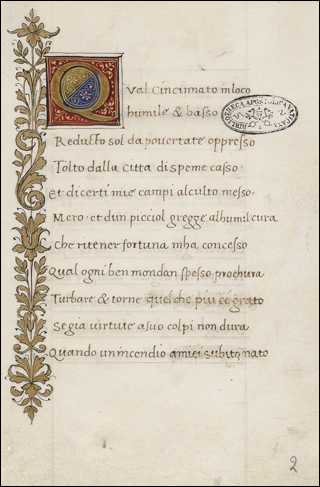 Qval Cincinnato in loco
humile & basso
Reducto sol da pouertate oppresso
Tolto dalla citta di speme casso
et di certi mie campi al culto messo
Mero et dun picciol gregge alhumil cura
Che ritener fortuna mha concesso
Qual ogni ben mondan spesso prochura
Turbare & torne quel che piu e e grato
Se gia virtute a suo colpi non dura
Quando un incendio amiei subito nato
2